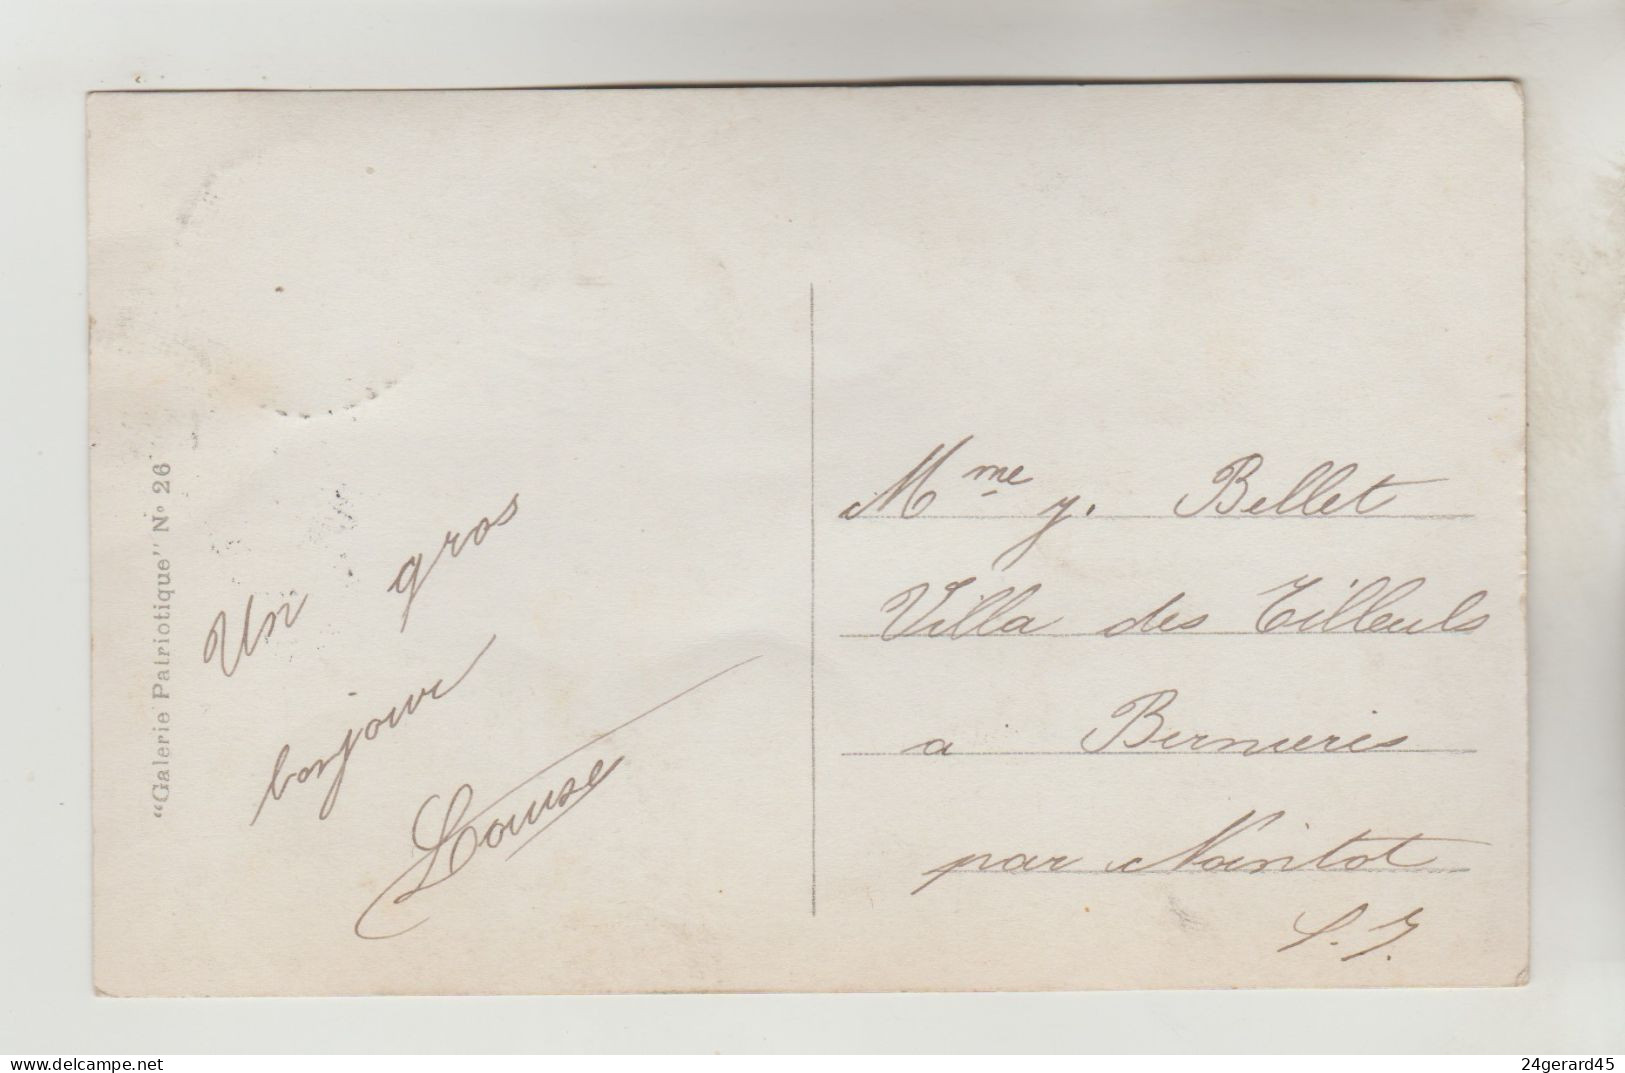 "Galerie Patriotique" No 26
Un gros
bonjour
Louise
Mme y. Bellet
Villa des Tilleuls
a Bernieres
par Nointot
S. I.
delcampe.net
24gerard45